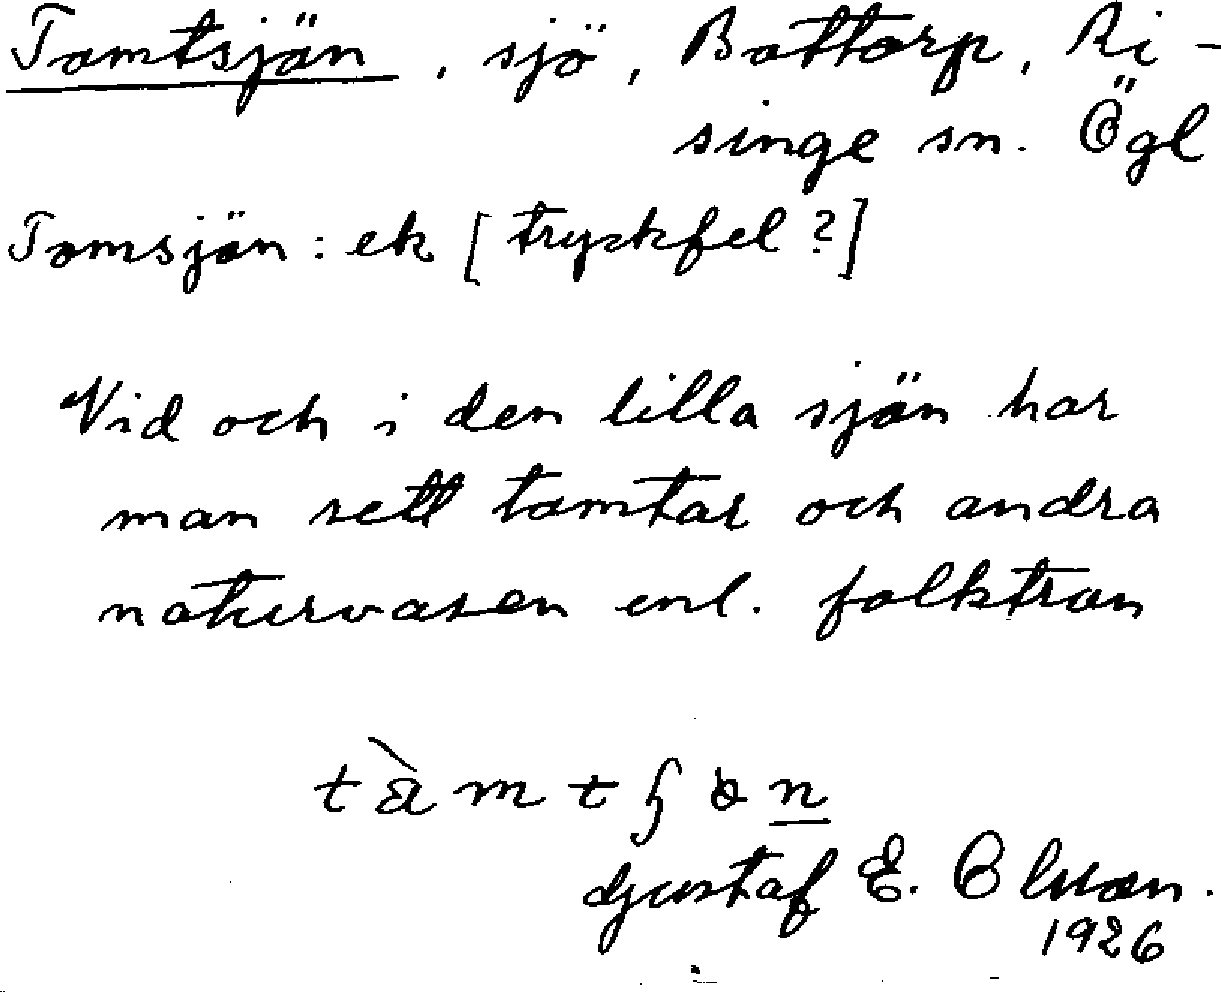 Tomtsjön, sjö, Bottorp, Ri-
singe sn. Ögl
Tomsjön: ek [tryckfel?]
Vid och i den lilla sjön har
man sett tomtar och andra
naturväsen enl. folktron
Gustaf E. Olsson.
1926